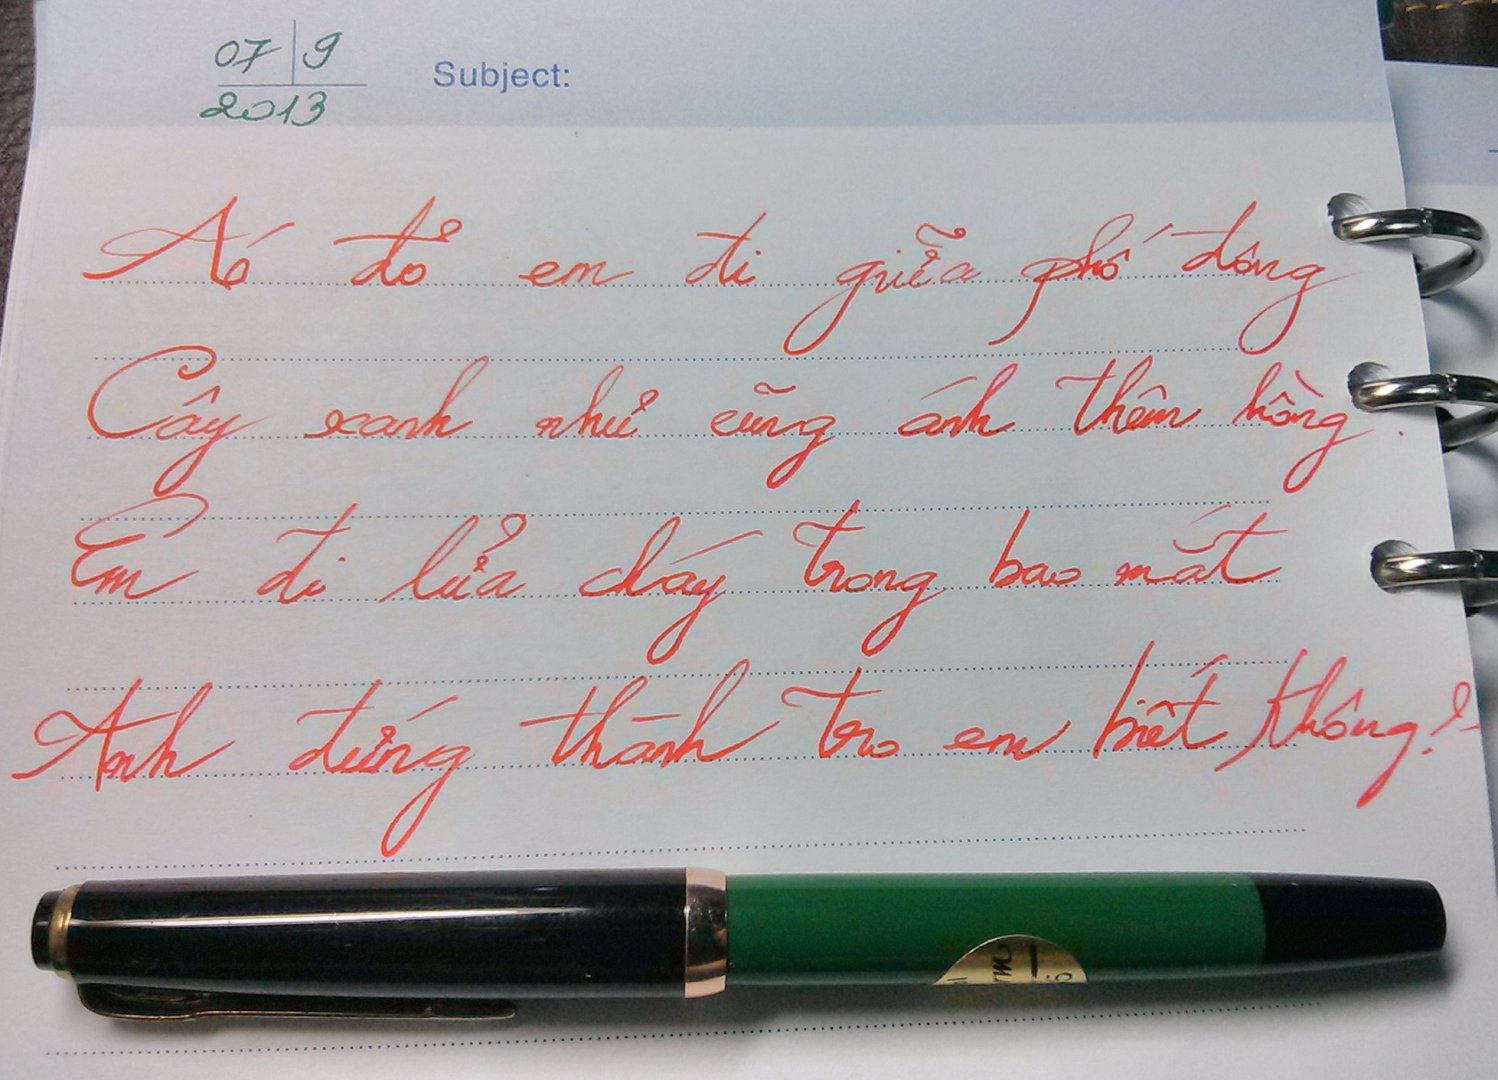 07 9
2013
Subject:
Áó đỏ em đi giữa phố đông
Cây xanh như cũng ánh thêm hồng.
Em đi lửa cháy trong bao mắt
Anh đứng thành tro em biết không?